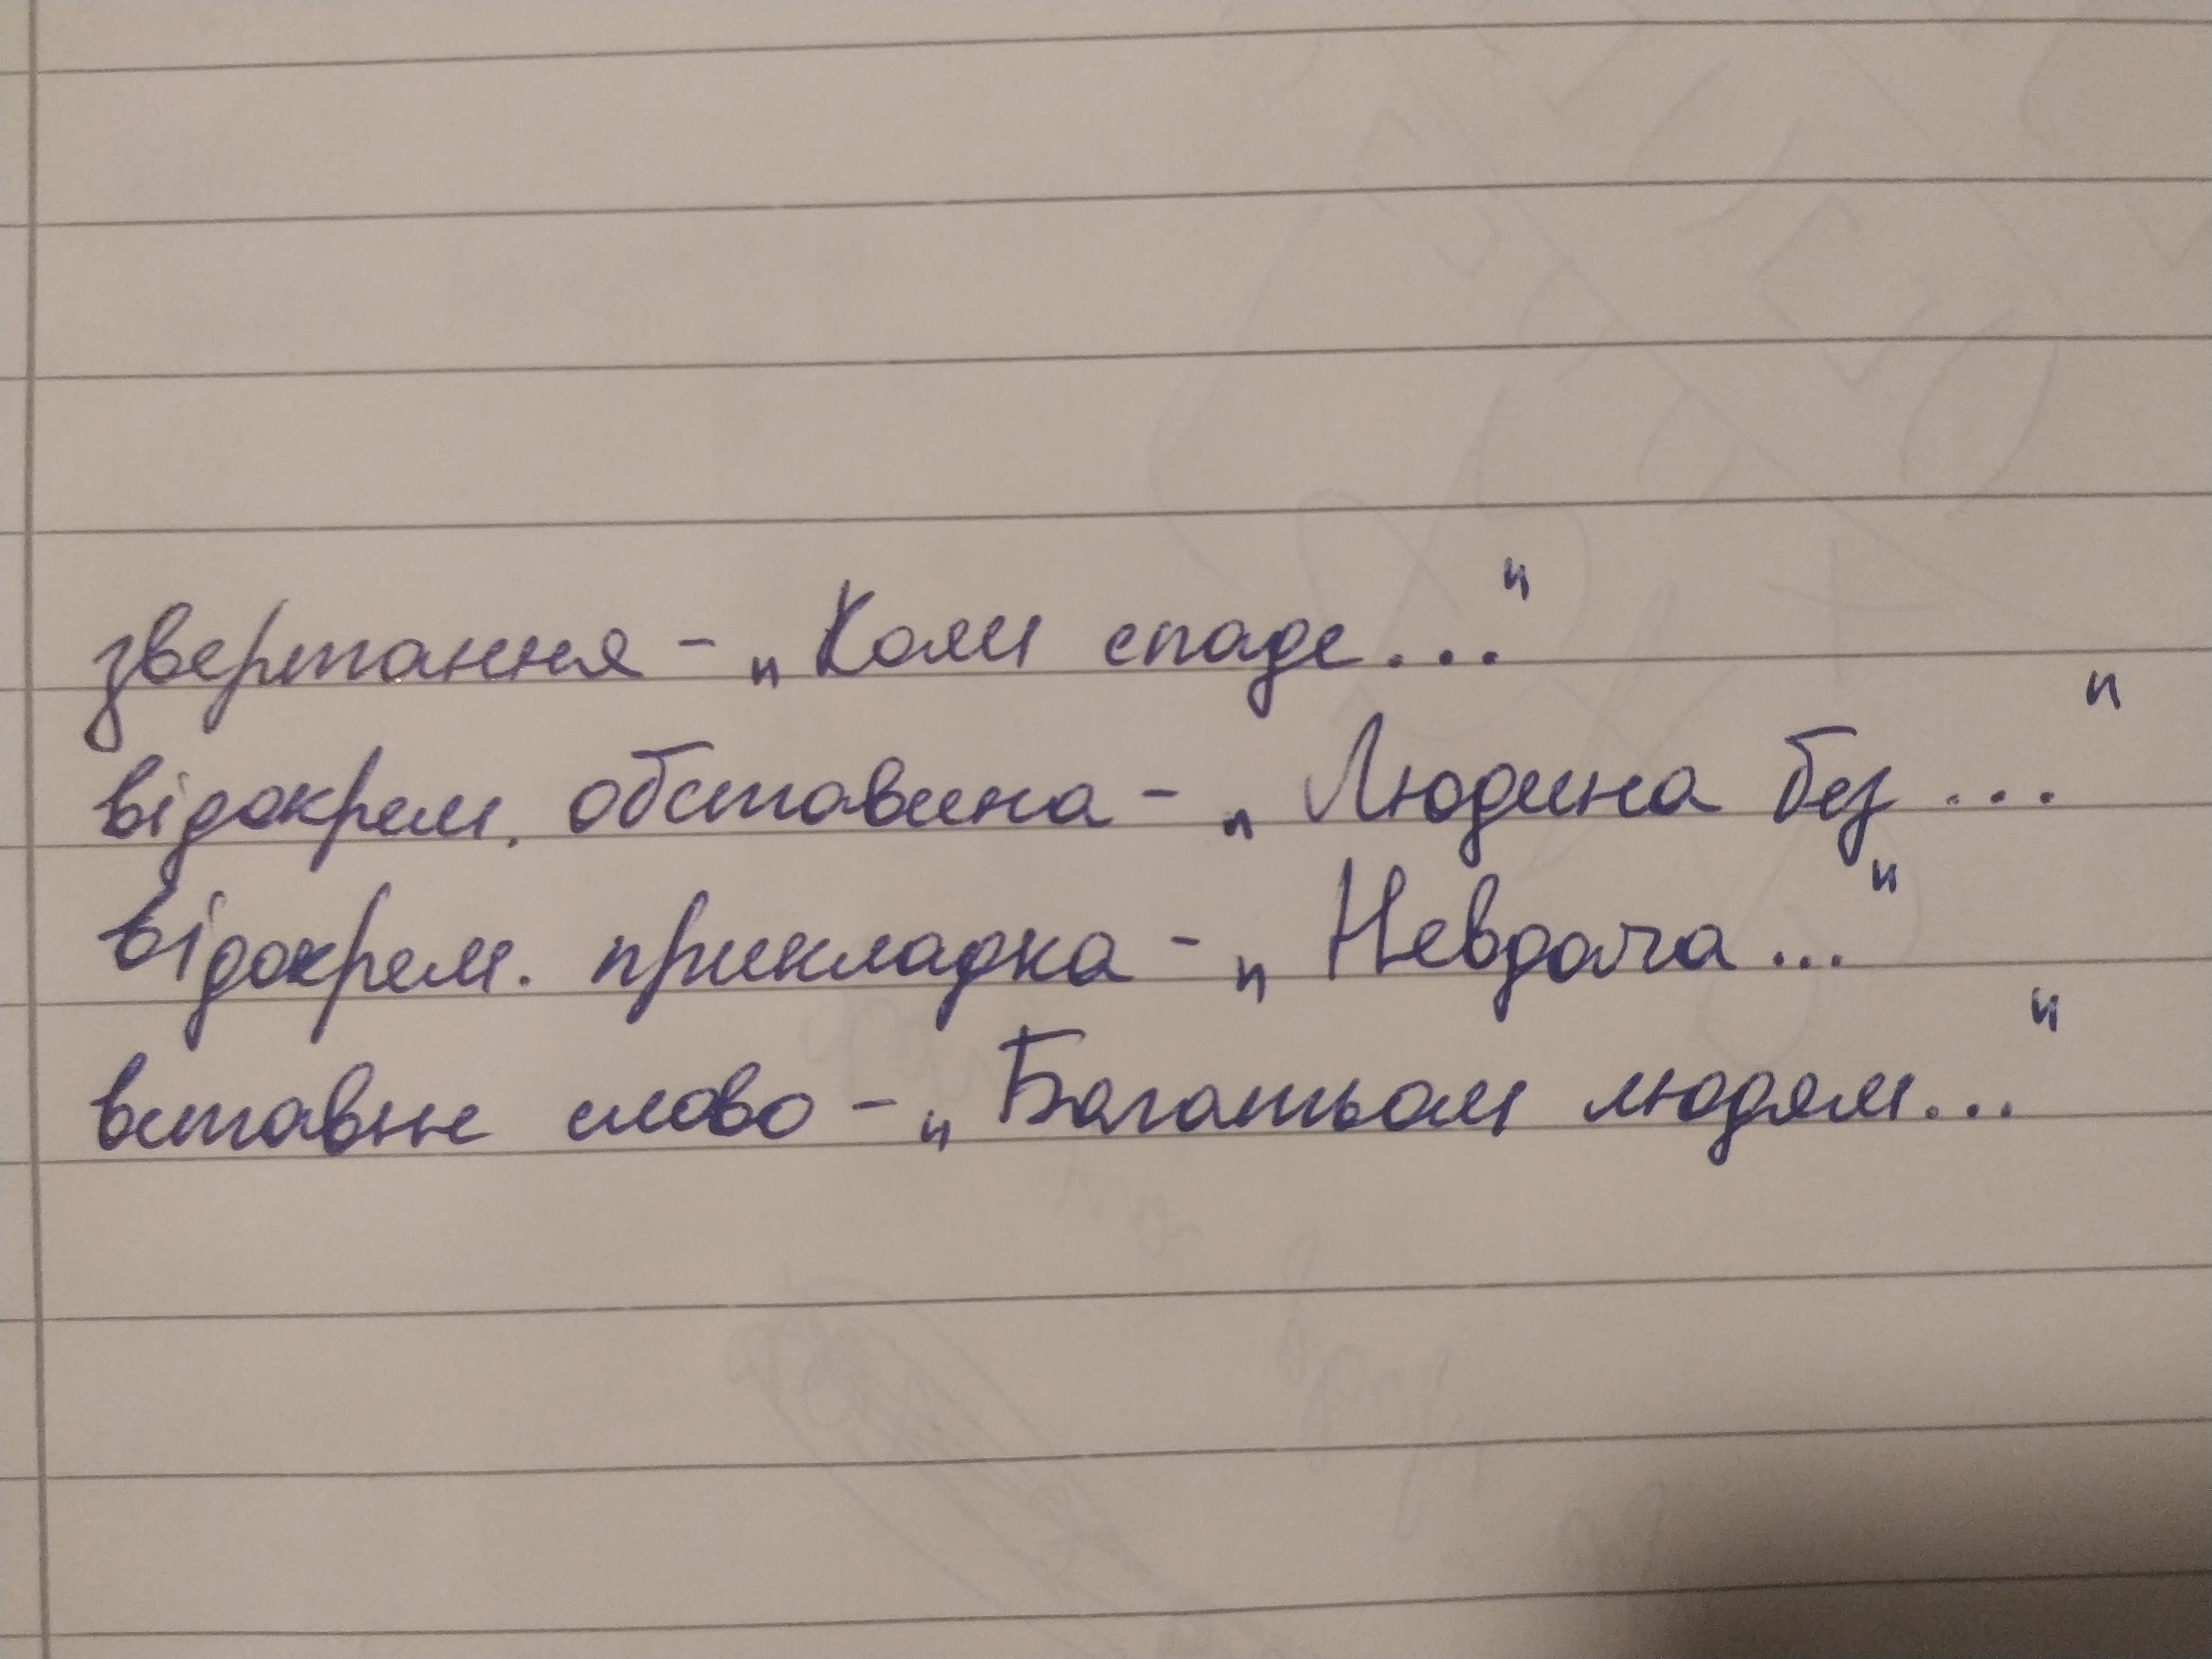 звертання - „Коли спаде..."
відокрем. обставина - „Людина без ..."
відокрем. прикладка - „Невдача ..."
вставне слово - „Багатьом людям..."